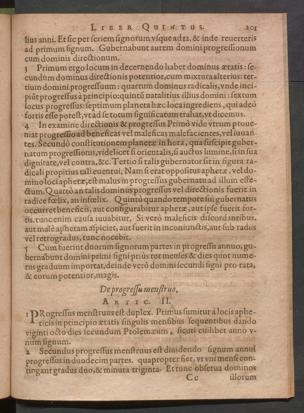 LIBER QUINTUS. 203
lius anni. Et sic per seriem signorum vsque ad 12. & inde reuerteris
ad primum signum. Gubernabunt autem domini progressionum
cum dominis directionum.
3 Primum ergo locum in decernendo habet dominus ætatis: se-
cundum dominus directionis potentior, cum mixtura alterius: ter-
tium domini progressuum: quartum dominus radicalis, vnde inci-
piūt progressus à principio quinti & natalitius illius domini: sextum
locus progressus: septimum planeta hæc loca ingrediens, qui adeò
fortis esse potest, vt ad se totum significatum trahat, vt dicemus.
4 In examine directionis & progressus Primò vide vtrum proue-
niat progressio ad beneficas vel maleficas malefacientes, vel iuuan-
tes. Secundò constitutionem planetæ in hora, qua suscipit guber-
natum progressionis, videlicet si orientalis, si auctus lumine, si in sua
dignitate, vel contra, &c. Tertio si talis gubernator sit in figura ra-
dicali propitius tali euentui, Nam si erat oppositus aphetæ, vel do-
mino loci aphetæ, est malus in progressu gubernatu ad illum effe-
ctum. Quartò an talis dominus progressus vel directionis fuerit in
radice fœlix, an infœlix. Quintò quando tempora sui gubernatus
occurret beneficis, aut conspirabitur aphetæ, aut ipse fuerit for-
tis, tunc enim causa iuuabitur, Si verò maleficis discordantibus,
aut malè aphetam aspiciet, aut fuerit in inconiunctis, aut sub radiis
vel retrogradus, tunc nocebit.
5 Cum fuerint duorum signorum partes in progressu annuo, gu-
bernabunt domini primi signi priùs tot menses & dies quot nume-
rus graduum importat, deinde verò domini secundi signi pro rata,
& eorum potentior magis.
De progressu menstruo.
ARTIC. II.
1 PRogressus menstruus est duplex. Primus sumitur à locis aphe-
ticis in principio ætatis singulis mensibus sequentibus dando
viginti octo dies secundum Ptolemæum, sicuti cuilibet anno v-
num signum.
2 Secundus progressus menstruus est diuidendo signum annui
progressus in duodecim partes. quapropter fiet, vt vni mensi con-
tingant gradus duo, & minuta triginta. Et tunc obseruat dominos
Cc illorum